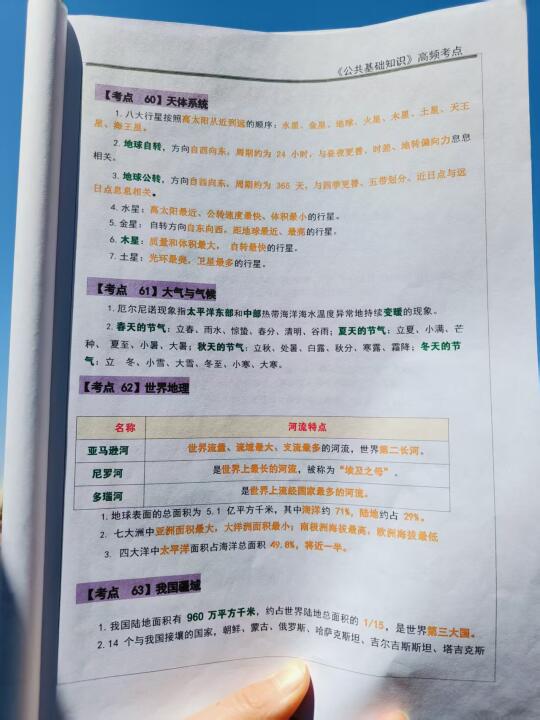 《公共基础知识》高频考点
【考点 60】天体系统
1. 八大行星按照离太阳从近到远的顺序：水星、金星、地球、火星、木星、土星、天王
星、海王星。
2. 地球自转，方向自西向东，周期约为 24 小时，与昼夜更替、时差、地转偏向力息息
相关。
3. 地球公转，方向自西向东，周期约为 365 天，与四季更替、五带划分、近日点与远
日点息息相关。
4. 水星：离太阳最近、公转速度最快、体积最小的行星。
5. 金星：自转方向自东向西，距地球最近、最亮的行星。
6. 木星：质量和体积最大， 自转最快的行星。
7. 土星：光环最亮，卫星最多的行星。
【考点 61】大气与气候
1. 厄尔尼诺现象指太平洋东部和中部热带海洋海水温度异常地持续变暖的现象。
2. 春天的节气：立春、雨水、惊蛰、春分、清明、谷雨；夏天的节气：立夏、小满、芒
种、 夏至、小暑、大暑；秋天的节气：立秋、处暑、白露、秋分、寒露、霜降；冬天的节
气：立 冬、小雪、大雪、冬至、小寒、大寒。
【考点 62】世界地理
名称 河流特点
亚马逊河 世界流量、流域最大、支流最多的河流，世界第二长河。
尼罗河 是世界上最长的河流，被称为“埃及之母”。
多瑙河 是世界上流经国家最多的河流。
1. 地球表面的总面积为 5.1 亿平方千米，其中海洋约 71%，陆地约占 29%。
2. 七大洲中亚洲面积最大，大洋洲面积最小；南极洲海拔最高，欧洲海拔最低
3. 四大洋中太平洋面积占海洋总面积 49.8%，将近一半。
【考点 63】我国疆域
1. 我国陆地面积有 960 万平方千米，约占世界陆地总面积的 1/15，是世界第三大国。
2. 14 个与我国接壤的国家，朝鲜、蒙古、俄罗斯、哈萨克斯坦、吉尔吉斯斯坦、塔吉克斯